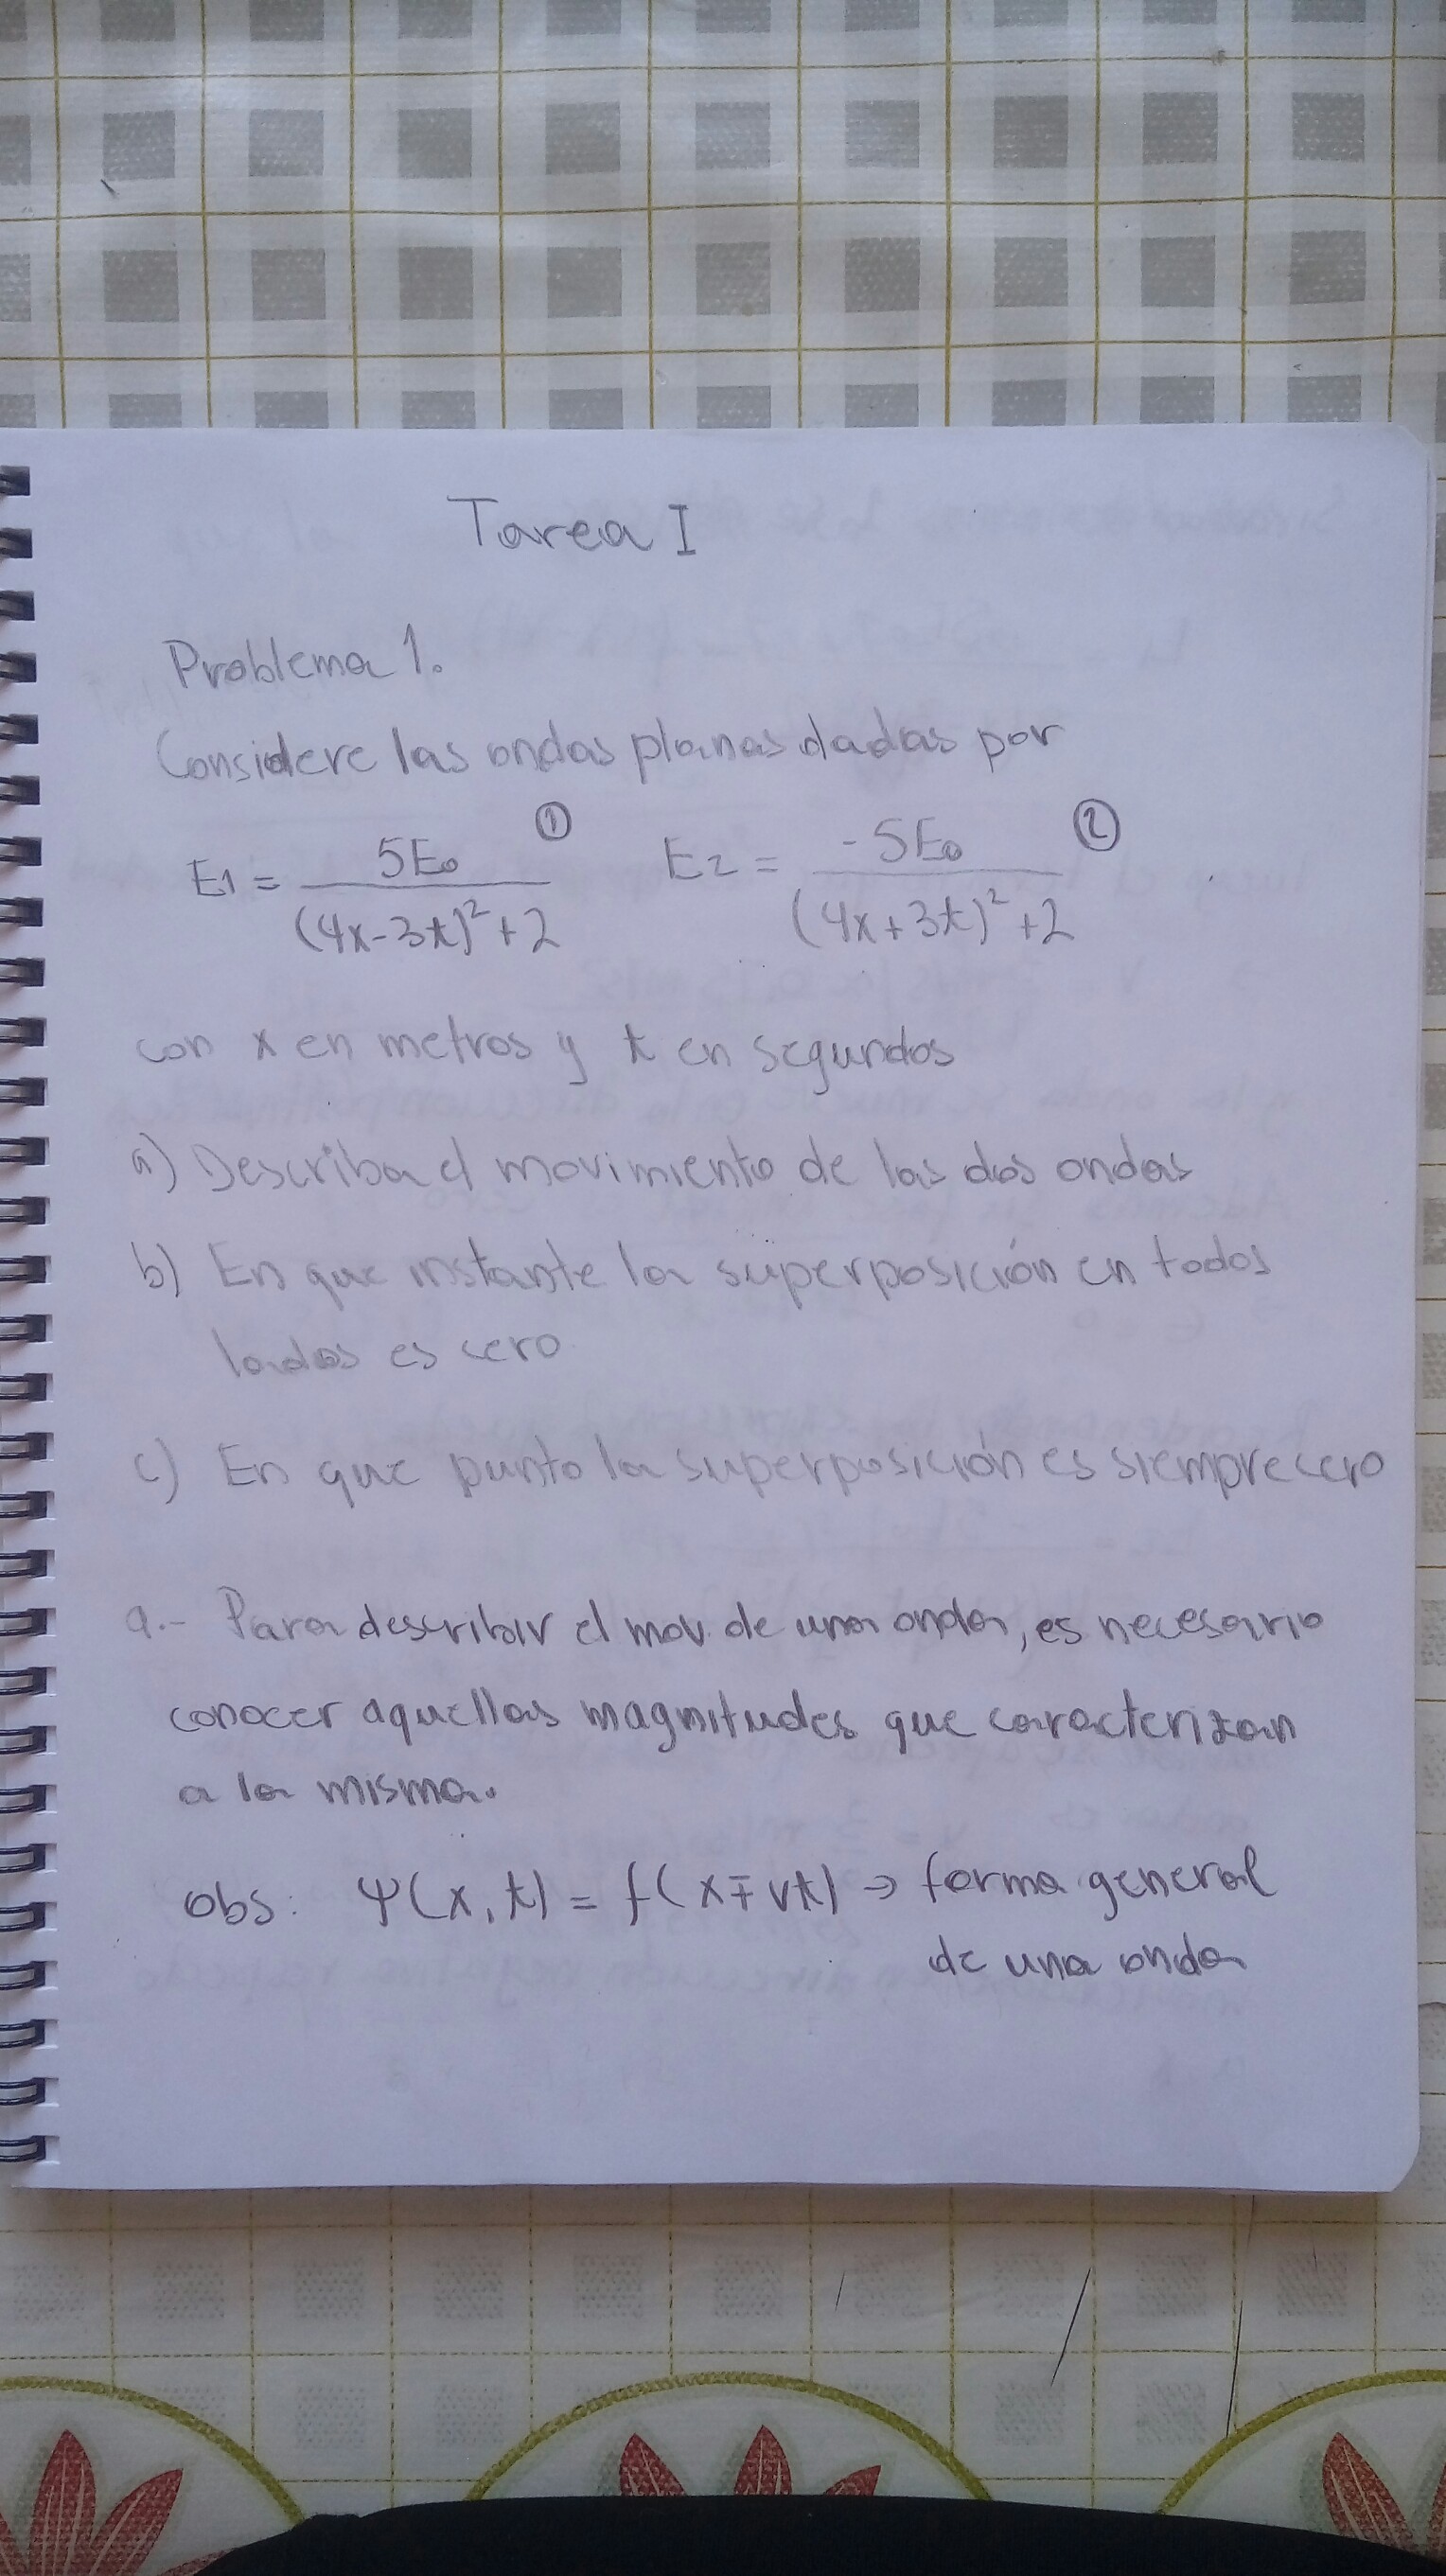 Tarea I
Problema 1.
Considere las ondas planas dadas por
E1 = 5E0 / ((4x-3t)² +2) ① E2 = -5E0 / ((4x+3t)² +2) ②
con x en metros y t en segundos
a) Describa el movimiento de las dos ondas
b) En que instante la superposición en todos
lados es cero
c) En que punto la superposición es siempre cero
a.- Para describir el mov. de una onda, es necesario
conocer aquellas magnitudes que caracterizan
a la misma.
obs: Ψ(x,t) = f(x∓vt) → forma general
de una onda